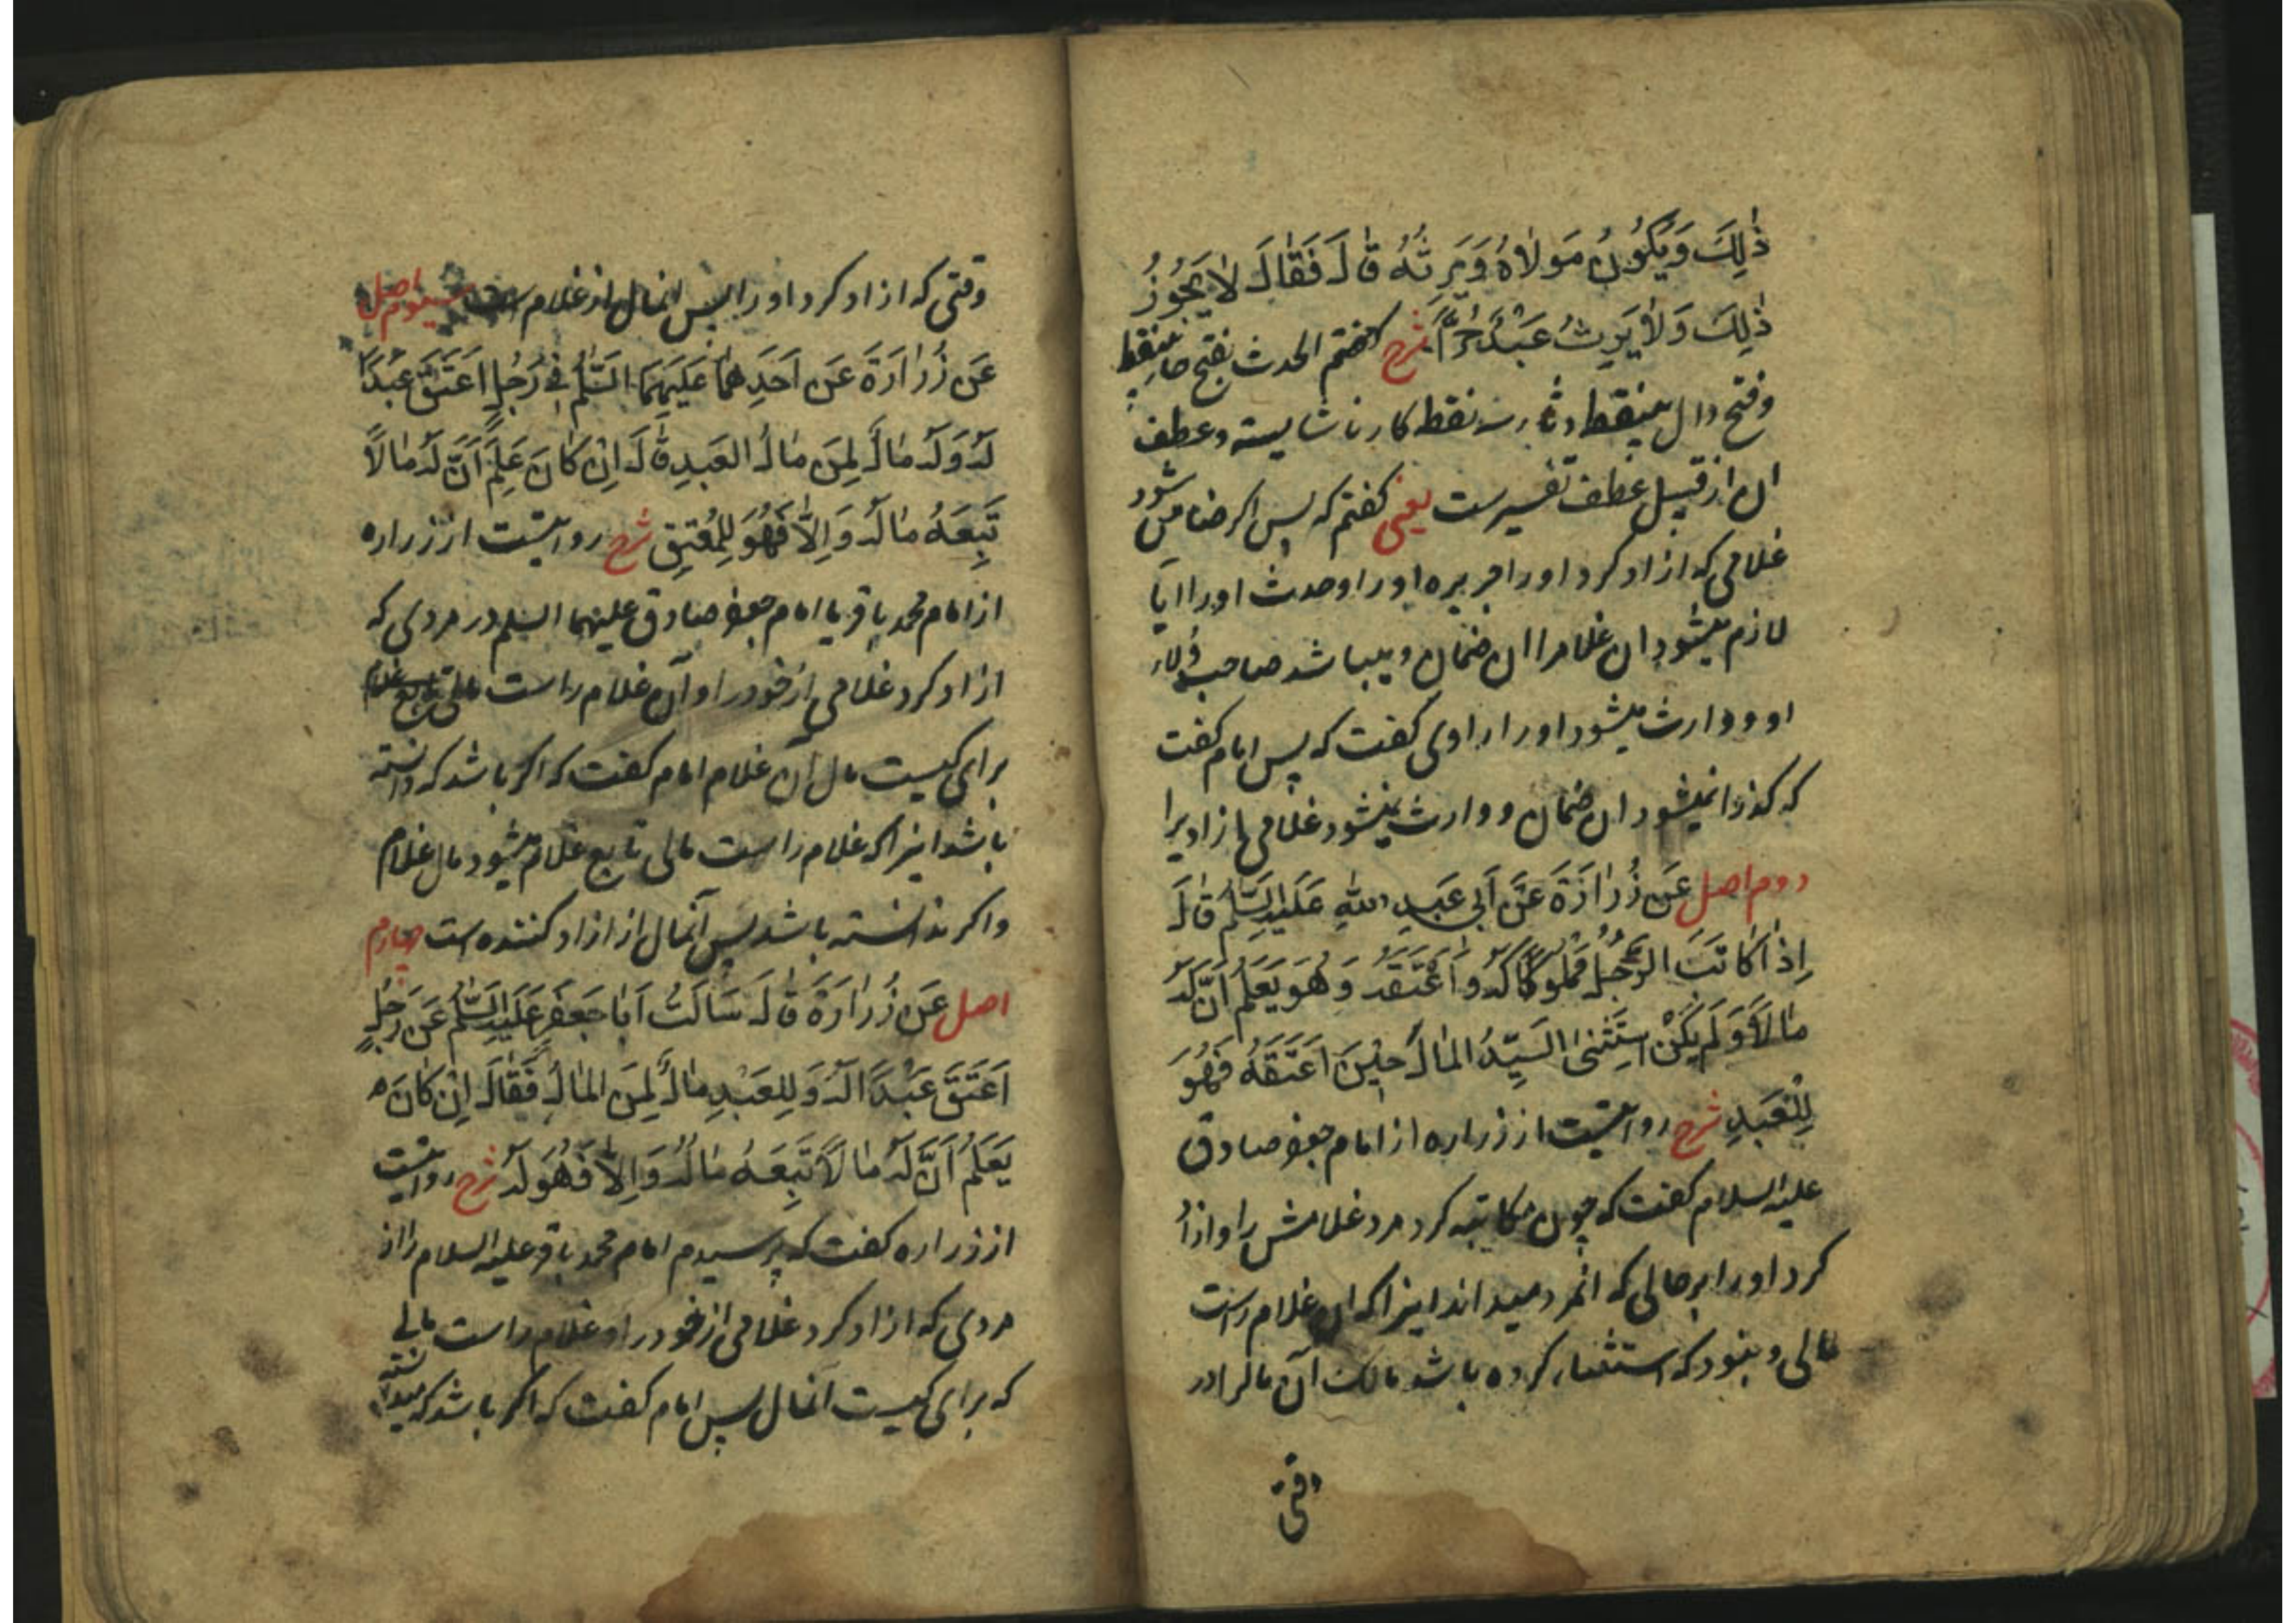 ذٰلِكَ وَيَكُونُ مَولاهُ وَيَرِثُهُ قٰالَ فَقٰالَ لاٰ يَجُوزُ
ذٰلِكَ وَلاٰ يَرِثُ عَبْدٌ حُرًّا شرح كفتم الحدث بفتح حا بينقط
وفتح دال بينقط وثاء سه نقط كار ناشايسته وعطف
ان از قبيل عطف تفسيرست يعنى كفتم كه پس اكر ضامن شود
غلامى كه ازاد كرد اورا جريره اورا وحدث اورا ايا
لازم ميشود ان غلامرا ان ضمان وميباشد صاحب ولاء
او ووارث ميشود اورا راوى كفت كه پس امام كفت
كه كذرا نميشود ان ضمان ووارث نميشود غلامى ازاديرا
دوم اصل عَن زُرٰارَةَ عَن اَبي عَبدِ اللهِ عَلَيهِ السَّلٰم قٰالَ
اِذٰا كٰاتَبَ الرَّجُلُ مَملُوكًا لَهُ واَعْتَقَهُ وَهُوَ يَعلَمُ اَنَّ لَهُ
مٰالاً وَلَم يَكُنْ اِستَثنىٰ السَّيِّدُ المٰالَ حِينَ اَعتَقَهُ فَهُوَ
لِلْعَبدِ شرح روايتست از زراره از امام جعفر صادق
عليه السلام كفت كه چون مكاتبه كرد مرد غلامش را وازاد
كرد اورا برحالى كه انمرد ميداند اينرا كه ان غلام راست
مالى ونبود كه استثناء كرده باشد مالك آن مالرا در
وقتى
وقتى كه ازاد كرد اورا پس انمال از غلام است سيوم اصل
عَن زُرٰارَةَ عَن اَحَدِهِمٰا عَلَيهِمَا السَّلٰم فِي رَجُلٍ اَعتَقَ عَبْدًا
لَهُ وَلَهُ مٰالٌ لِمَن مٰالُ العَبدِ قٰالَ اِنْ كٰانَ عَلِمَ اَنَّ لَهُ مٰالاً
تَبِعَهُ مٰالُهُ وَاِلاّٰ فَهُوَ لِلمُعْتِقِ شرح روايتست از زراره
از امام محمد باقر يا امام جعفر صادق عليهما السلم در مردى كه
ازاد كرد غلامى از خود را وآن غلام راست مالى
براى كيست مال آن غلام امام كفت كه اكر باشد كه دانسته
باشد اينرا كه غلام راست مالى تابع غلام ميشود مال غلام
واكر ندانسته باشد پس آنمال از ازاد كننده است چهارم
اصل عَن زُرٰارَةَ قٰالَ سَالتُ اَبٰا جَعفَرٍ عَلَيهِ السَّلٰم عَن رَجُلٍ
اَعتَقَ عَبْدًا لَهُ وَلِلعَبْدِ مٰالٌ لِمَنِ المٰالُ فَقٰالَ اِنْ كٰانَ
يَعلَمُ اَنَّ لَهُ مٰالاً تَبِعَهُ مٰالُهُ وَاِلاّٰ فَهُوَ لَهُ شرح روايتست
از زراره كفت كه پرسيدم امام محمد باقر عليه السلام را از
مردى كه ازاد كرد غلامى از خود را وغلام راست مالى
كه براى كيست انمال پس امام كفت كه اكر باشد كه ميدانسته